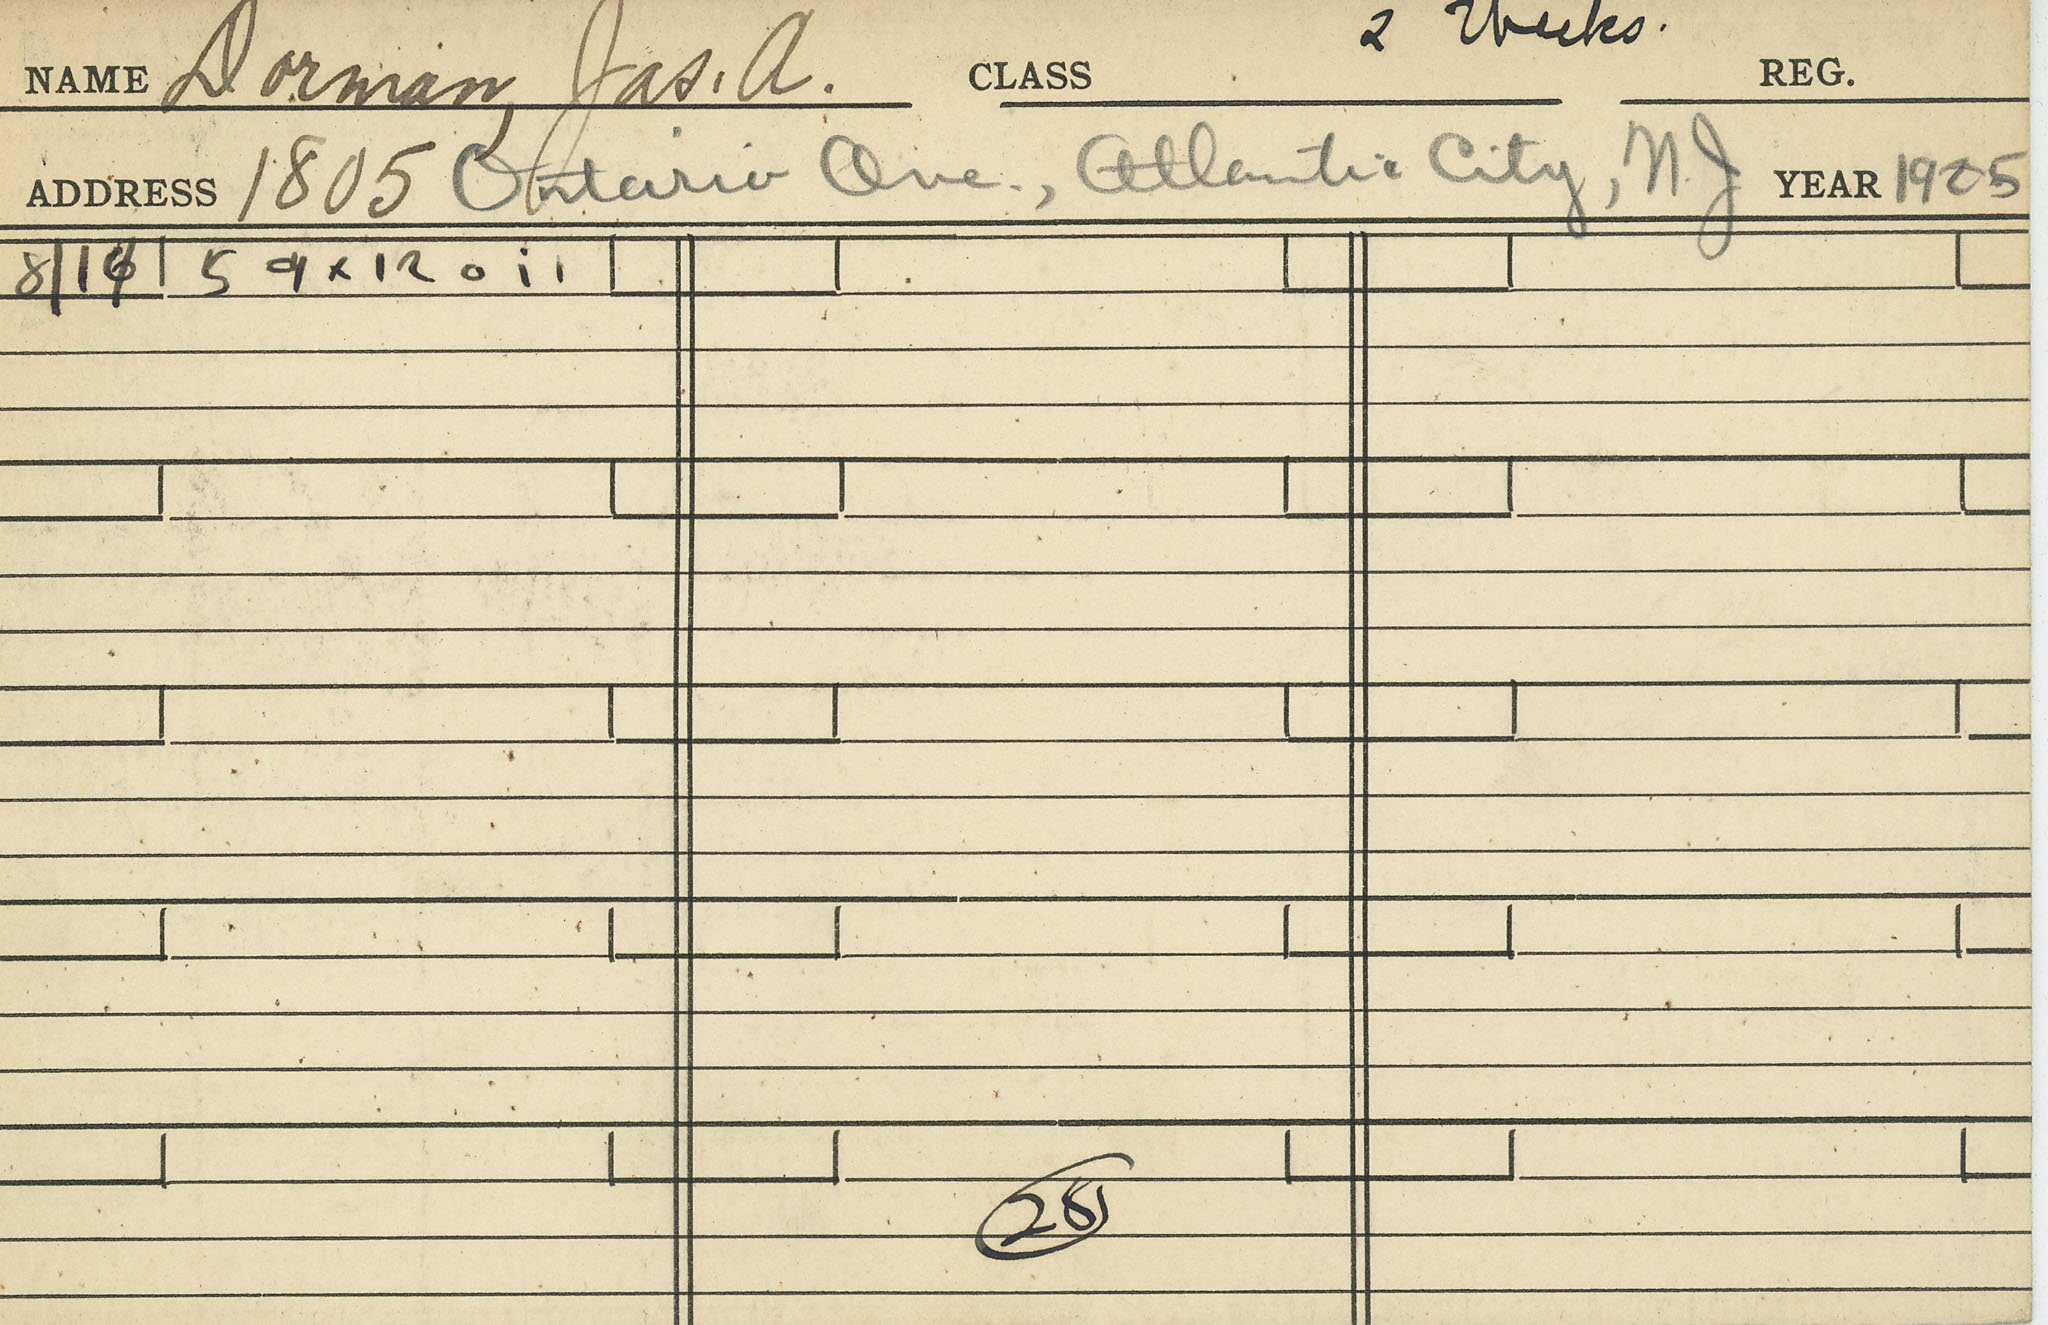 2 Weeks.
NAME Dorman, Jas. A. CLASS REG.
ADDRESS 1805 Ontario Ave., Atlantic City, N.J YEAR 1925
5 9x12 oil
28